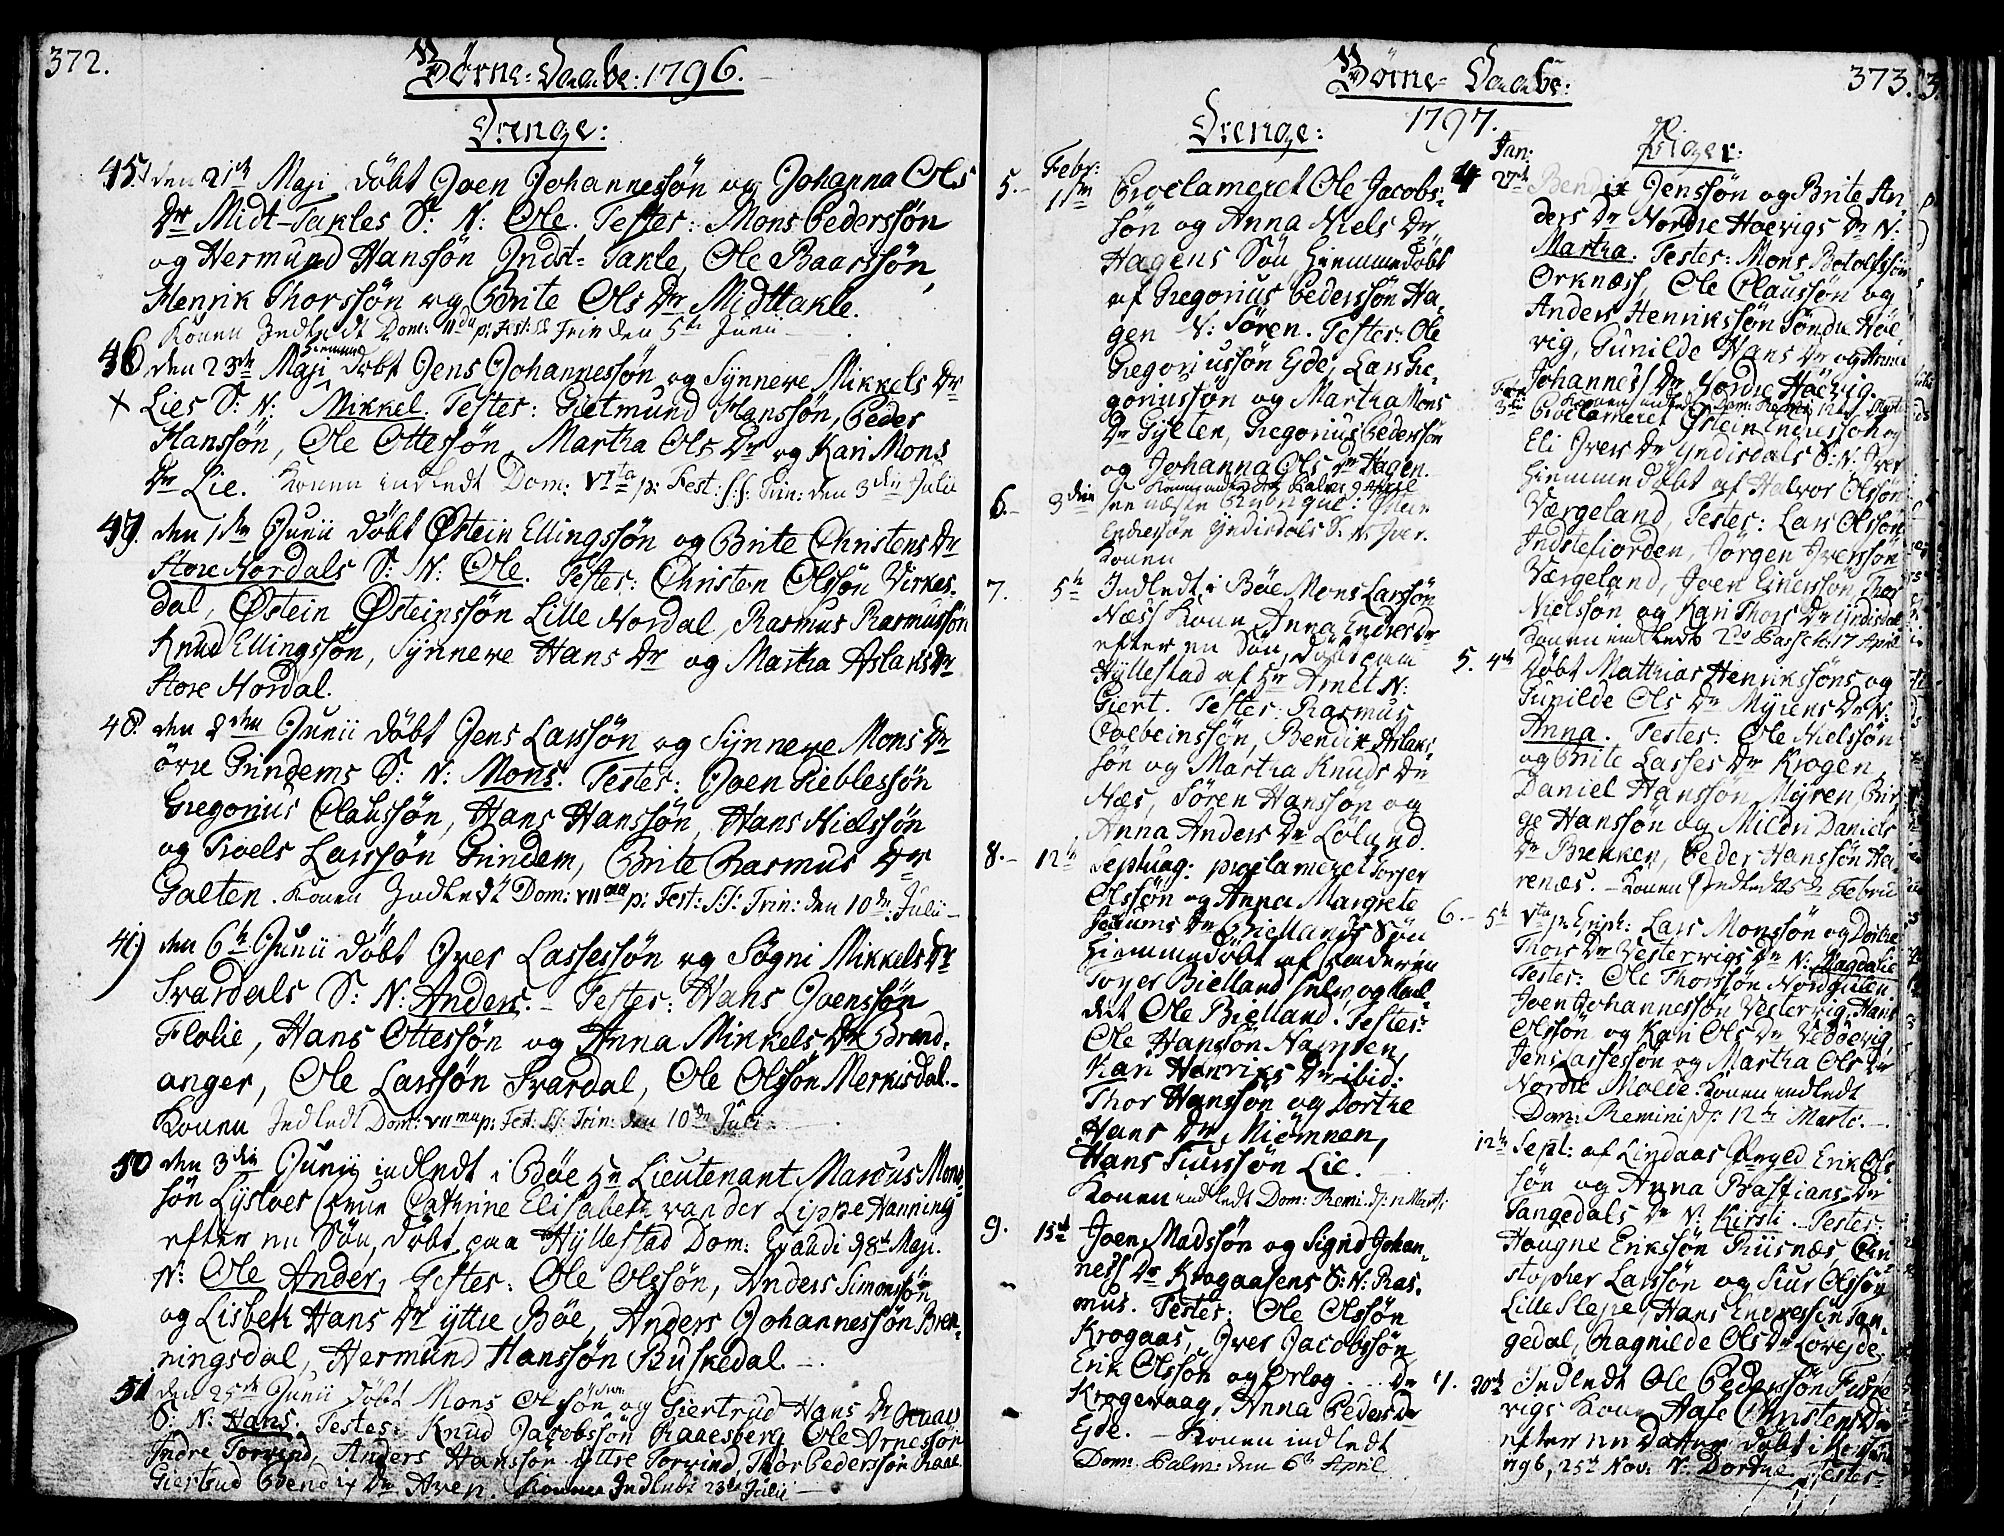 372.
Børne-Daabe: 1796.
Drenge:
45. den 21de Maji døbt Joen Johannessøn og Johanna Ols
Dr Midt-Takles S: N: Ole. Testes: Mons Pederssøn
og Hermund Hanssøn Indst-Takle, Ole Baarssøn,
Henrik Thorssøn og Brite Ols Dr Midttakle.
Konen Indledt Dom: IIda p: Fest: SS Trin den 5te Junii
46 den 23de Maji Hiemme døbt Jens Johannessøn og Synneve Mikkels Dr
Lies S: N: Mikkel. Testes: Gietmund Hanssøn, Peder
Hanssøn, Ole Ottessøn, Martha Ols Dr og Kari Mons
Dr Lie. Konen indledt Dom: VIta p: Fest: S:S: Trin: den 3die Julii
47. den 1ste Junii døbt Østein Ellingssøn og Brite Christens Dr
Store Nordals S: N: Ole. Testes: Christen Olssøn Virkes-
dal, Østein Østeinssøn Lille Nordal, Rasmus Rasmussøn
Knud Ellingssøn, Synneve Hans Dr og Martha Aslaks Dr
Store Nordal.
48. den 2den Junii døbt Jens Larssøn og Synneve Mons Dr
øvre Grindems S: N: Mons. Testes: Joen Pieblessøn
Gregorius Claussøn, Hans Hanssøn, Hans Nielssøn
og Troels Larssøn Grindem, Brite Rasmus Dr
Galten. Konen Indledt Dom: VIIma p: Fest: S:S: Trin: den 10de Julii
49 den 6te Junii døbt Iver Lassessøn og Søgni Mikkels Dr
Svardals S: N: Anders. Testes: Hans Joenssøn
Flolie, Hans Ottessøn og Anna Mikkels Dr Brend-
anger, Ole Larssøn Svardal, Ole Olssøn Merkisdal.
Konen Indledt Dom: VIIma p: Fest: S:S: Trin: den 10de Juli
50 den 3die Junii indledt i Bøe Hr Lieutenant Marcus Mons-
søn Lystoes Frue Cathrine Elisabeth van der Lippe Hanning
efter en Søn, døbt paa Hyllestad Dom: Exaudi d 8de Maji.
N: Ole Ander, Testes: Ole Olssøn, Anders Simonssøn
og Lisbeth Hans Dr yttre Bøe, Anders Johannessøn Bren-
ningsdal, Hermund Hanssøn Buskedal.
51 den 25de Junii døbt Mons Olssøn og Giertrud Hans Dr
S: N: Hans. Testes: Knud Jacobssøn Raaesberg Ole Arnessøn
Indre Torvind, Anders Hanssøn yttre Torvind, Thor Pederssøn
Giertrud Bendix Dr Aven. Konen Indledt 23de Julii
Børne-Daabe: 373.
1797.
Drenge:
Febr:
5. 1ste Proclameret Ole Jacobs-
søn og Anna Niels Dr
Hagens Søn Hiemmedøbt
af Gregorius Pederssøn Ha-
gen N: Søren. Testes: Ole
Gregoriussøn Eyde, Lars Gre-
goriussøn og Martha Mons
Dr Gylten, Gregorius Pederssøn
og Johanna Ols Dr Hagen.
Konen indledt Palm: 9 April
6. 3die see næste Rubrique: Østein
Endressøn Yndisdals S: N: Iver.
Konen
7. 5te Indledt i Bøe Mons Larssøn
Næss Kone Anna Endres Dr
efter en Søn, døbt paa
Hyllestad af Hr Arnet N:
Giert. Testes: Rasmus
Colbeinssøn, Bendix Aslaks
søn og Martha Knuds Dr
Næs, Søren Hanssøn og
Anna Anders Dr Lølund.
8. 12te Septuag: proclameret Torger
Olssøn og Anna Margrete
Dr Biellands Søn
Hiemmedøbt af Faderen
Torger Bielland selv, og kal-
det Ole Bielland. Testes:
Ole Hanssøn
Kari Henriks Dr ibid:
Thor Hanssøn og Dorthe
Hans Dr Miømnen,
Hans Siurssøn Lie.
Konen indledt Dom: Remi. d: 12 Marti:
9. 15de Joen Madssøn og Signd Johan-
ness Dr Krogaasens S: N: Ras-
mus. Testes: Ole Olssøn
Krogaas, Iver Jacobssøn,
Erik Olssøn og Ørlog . . . Dr
Krogevaag, Anna Peders Dr
Eyde. Konen indledt
Dom: Palm: den 6te April
Piger:
Jan:
4 27de Bendix Jenssøn og Brite An-
ders Dr Nordre Høevigs Dr N:
Martha. Testes: Mons Botolfssøn
Ørknæss, Ole Claussøn og
Anders Henrikssøn Søndre Høe-
vig, Gunilde Hans Dr og Anne
Johanness Dr Nordre Høevig.
Konen indledt Dom: Remi: 12te Martii
Febr: 3die Proclameret Østein Endressøn og
Eli Ivers Dr Yndisdals S: N: Iver
Hiemmedøbt af Halvor Olssøn
Værgeland, Testes: Lars Olssøn
Indstefiorden, Jørgen Iverssøn
Værgeland, Joen Einerssøn, Thor
Nielssøn og Kari Thors Dr Yndisdal
Konen indledt 2de Pasch: 17 April
5. 4de Døbt Matthias Henrikssøns og
Gunilde Ols Dr Myrens Dr N:
Anna. Testes: Ole Nielssøn
og Brite Lasses Dr Krogen,
Daniel Hanssøn Myren, Bir-
ge Hanssøn og Mildri Daniels
Dr Brekken, Peder Hanssøn Ha-
renæs. Konen Indledt 25de Febru
6. 5te Vta p: Epiph: Lars Monssøn og Dorthe
Thors Dr Vestervigs Dr N: Magdalie
Testes: Ole Thorssøn Nordgulen
Joen Johannessøn Vestervig, Hans
Olssøn og Kari Ols Dr Vedøevig,
Jens Lassessøn og Martha Ols Dr
Nordre Molde. Konen indledt
Dom: Reminisc: 12te Marti.
12te Sept: af Lindaas Præged Erik Ols
søn og Anna Bastians Dr
Tangedals Dr N: Kirsti. Testes:
Hougne Erikssøn Riisnæs Chri
stopher Larssøn og Siur Olssøn
Lille Slepe, Hans Endressøn Tan-
gedal, Ragnilde Ols Dr
7. 20de Indledt Ole Pederssøn
vigs Kone Aase Christens Dr
efter en Datter døbt i
1796, 25de Nov: N: Dorthe, Testes: